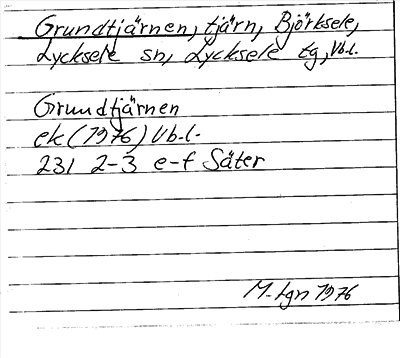 Grundtjärnen, tjärn, Björksele,
Lycksele sn, Lycksele tg, Vb.l.
Grundtjärnen
ek (1976) Vb.l.
231 2-3 e-f Säter
M. Lgn 1976